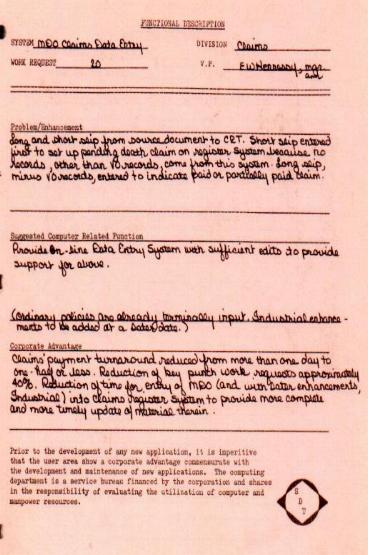 FUNCTIONAL DESCRIPTION
SYSTEM MDO Claims Data Entry DIVISION Claims
WORK REQUEST 20 V.P. E W Hennessy, mgr.
and
Problem/Enhancement
Long and short slip from source document to CRT. Short slip entered
first to set up pending death claim on register system because no
records, other than VO records, come from this system. Long slip,
minus VO records, entered to indicate paid or partially paid claim.
Suggested Computer Related Function
Provide On-Line Data Entry System with sufficient edits to provide
support for above.
(Ordinary policies are already terminally input. Industrial enhance-
ments to be added at a later date.)
Corporate Advantage
Claims' payment turnaround reduced from more than one day to
one-half or less. Reduction of key punch work requests approximately
40%. Reduction of time for entry of MDO (and with later enhancements,
Industrial) into Claims Register System to provide more complete
and more timely update of material therein.
Prior to the development of any new application, it is imperitive
that the user area show a corporate advantage commensurate with
the development and maintenance of new applications. The computing
department is a service bureau financed by the corporation and shares
in the responsibility of evaluating the utilization of computer and
manpower resources.
S
D
T